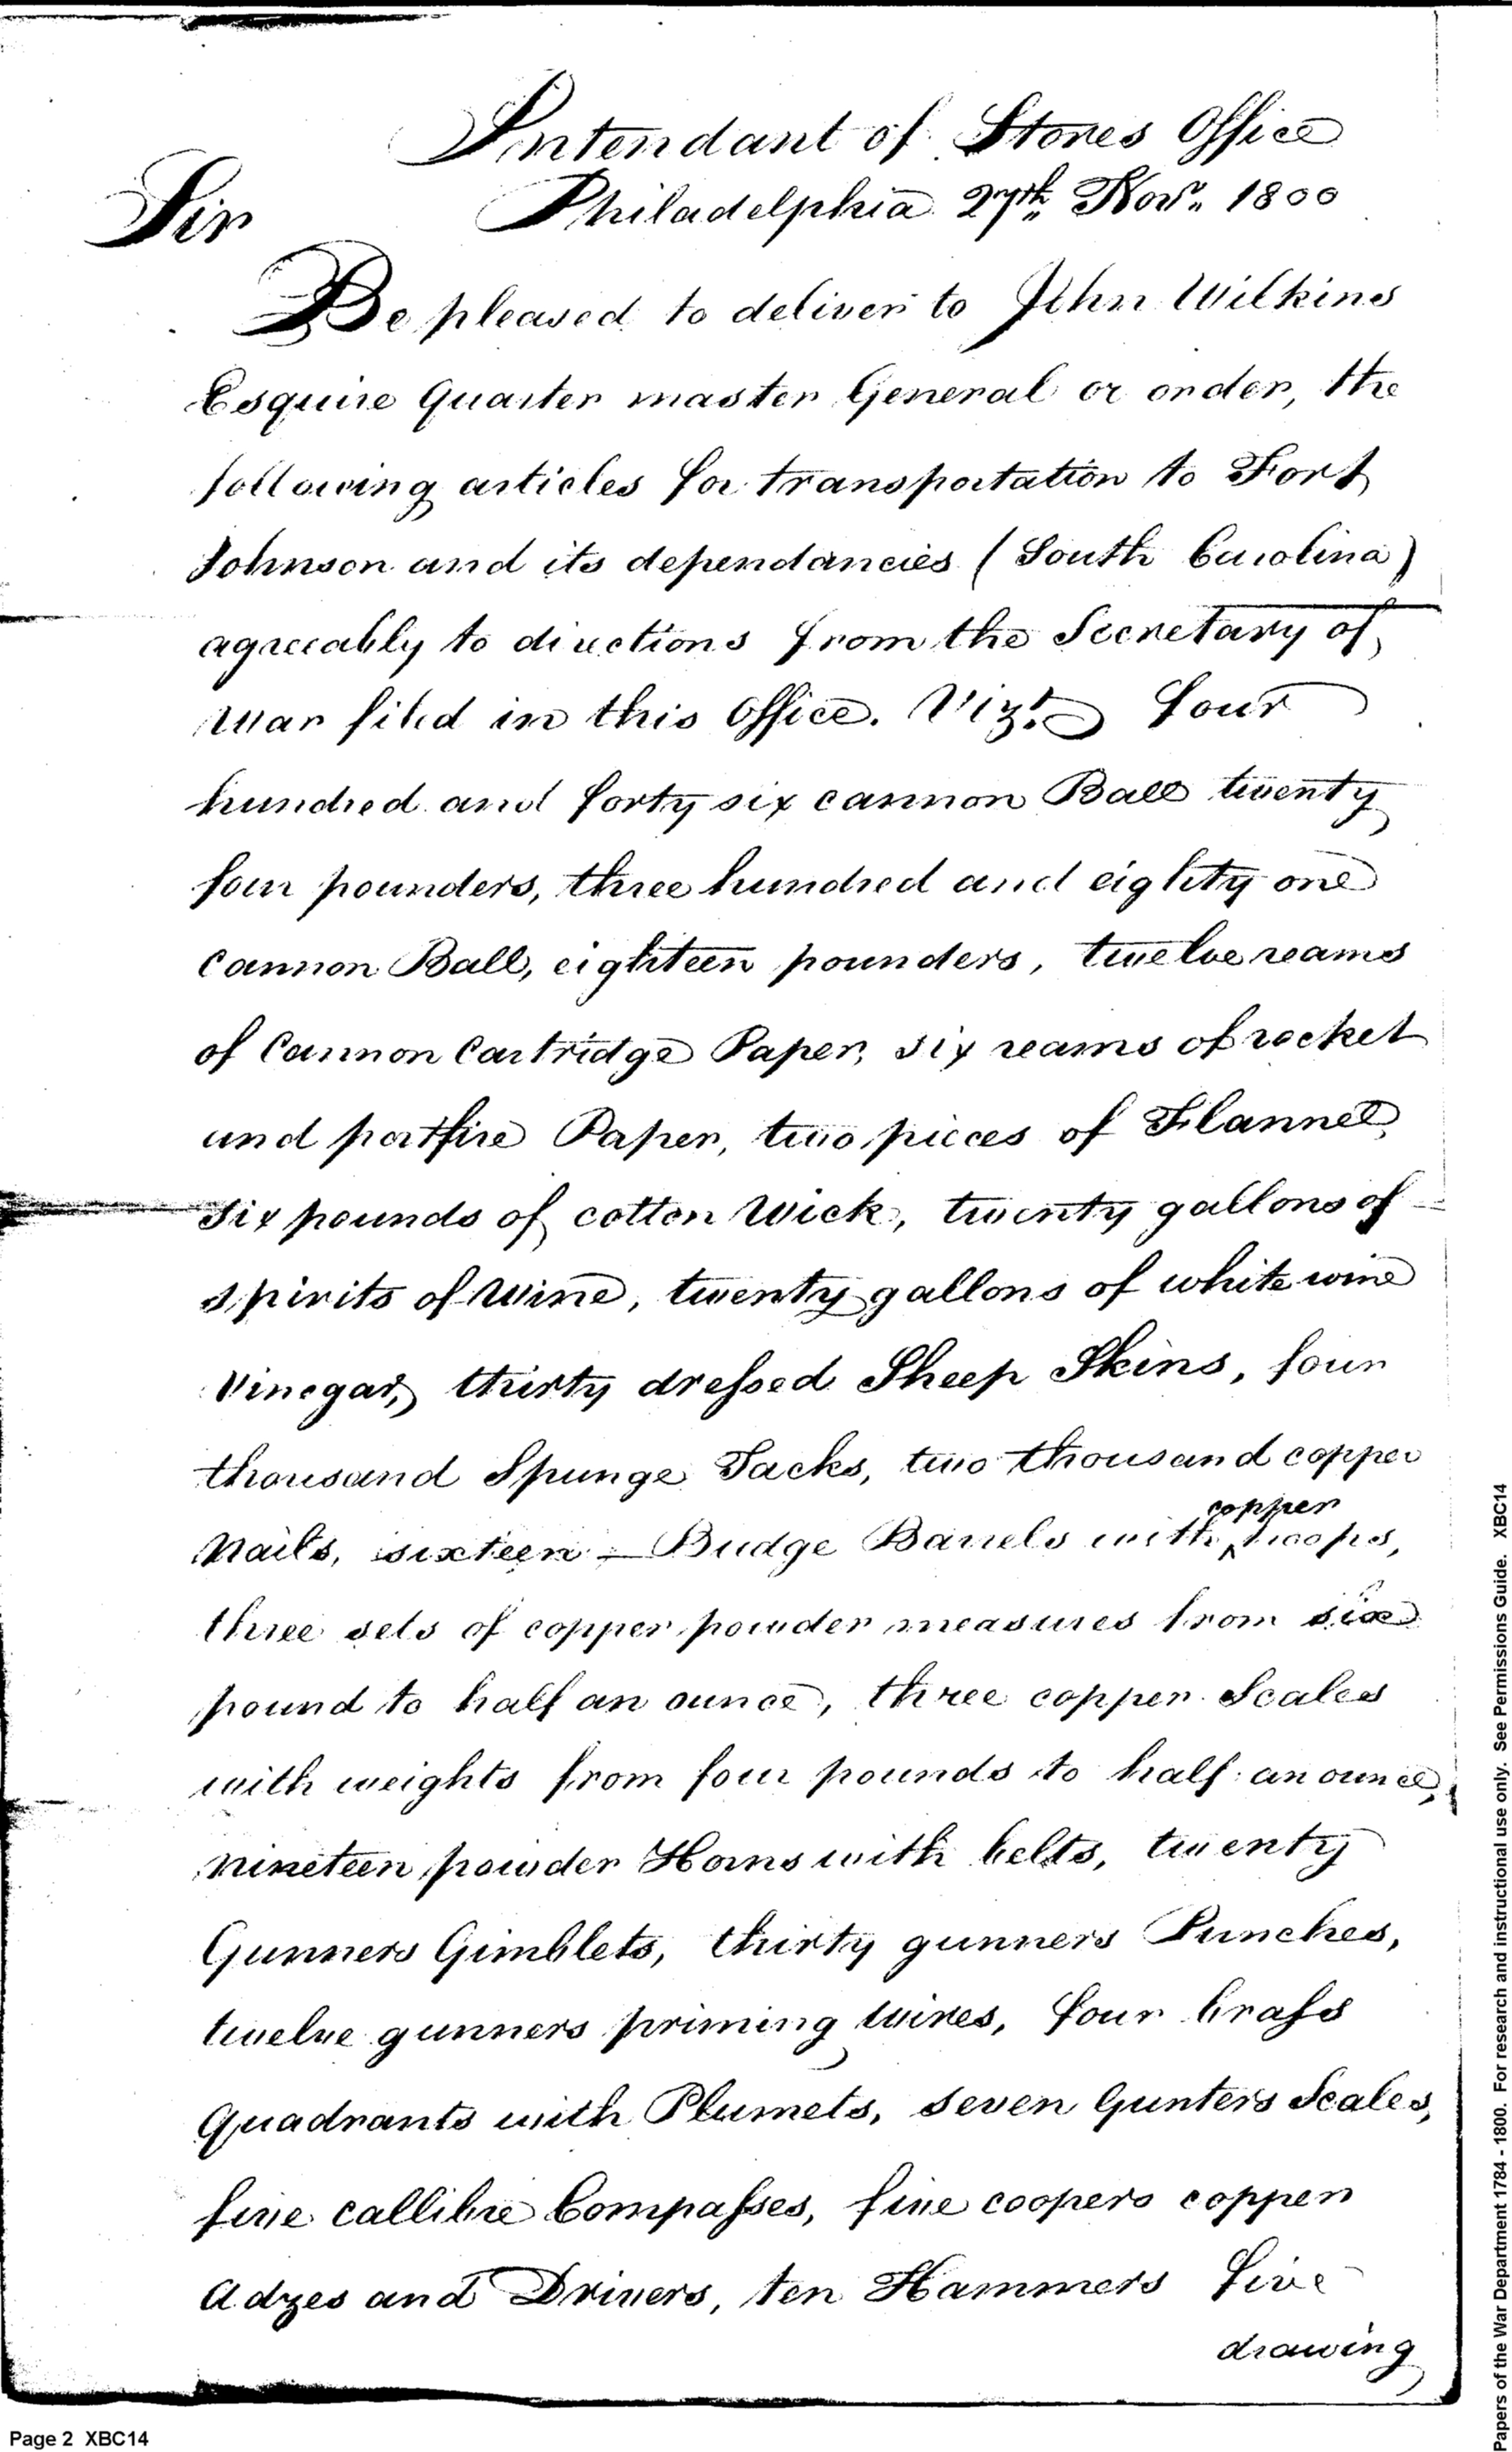 Intendant of Stores Office
Philadelphia 27th Novr. 1800
Sir
Be pleased to deliver to John Wilkins
Esquire Quarter master General or order, the
following articles for transportation to Fort
Johnson and its dependancies (South Carolina)
agreeably to directions from the Secretary of
War filed in this Office. Vizt. Four
hundred and forty six cannon Ball twenty
four pounders, three hundred and eighty one
cannon Ball, eighteen pounders, twelve reams
of Cannon Cartridge Paper, six reams of rocket
and portfire Paper, two pieces of Flannel,
six pounds of cotton Wick, twenty gallons of
spirits of Wine, twenty gallons of white wine
Vinegar, thirty dressed Sheep Skins, four
thousand Spunge Tacks, two thousand copper
Nails, sixteen — Budge Barrels with copper hoops,
three sets of copper powder measures from six
pound to half an ounce, three copper Scales
with weights from four pounds to half an ounce,
nineteen powder Horns with belts, twenty
Gunners Gimblets, thirty gunners Punches,
twelve gunners priming Wires, four brass
Quadrants with Plumets, seven Gunters Scales,
five callibre Compasses, five coopers copper
Adzes and Drivers, ten Hammers five
drawing
Page 2 XBC14
Papers of the War Department 1784 - 1800. For research and instructional use only. See Permissions Guide. XBC14